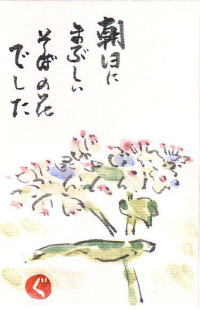 朝日に
まぶしい
そばの花
でした
ぐ